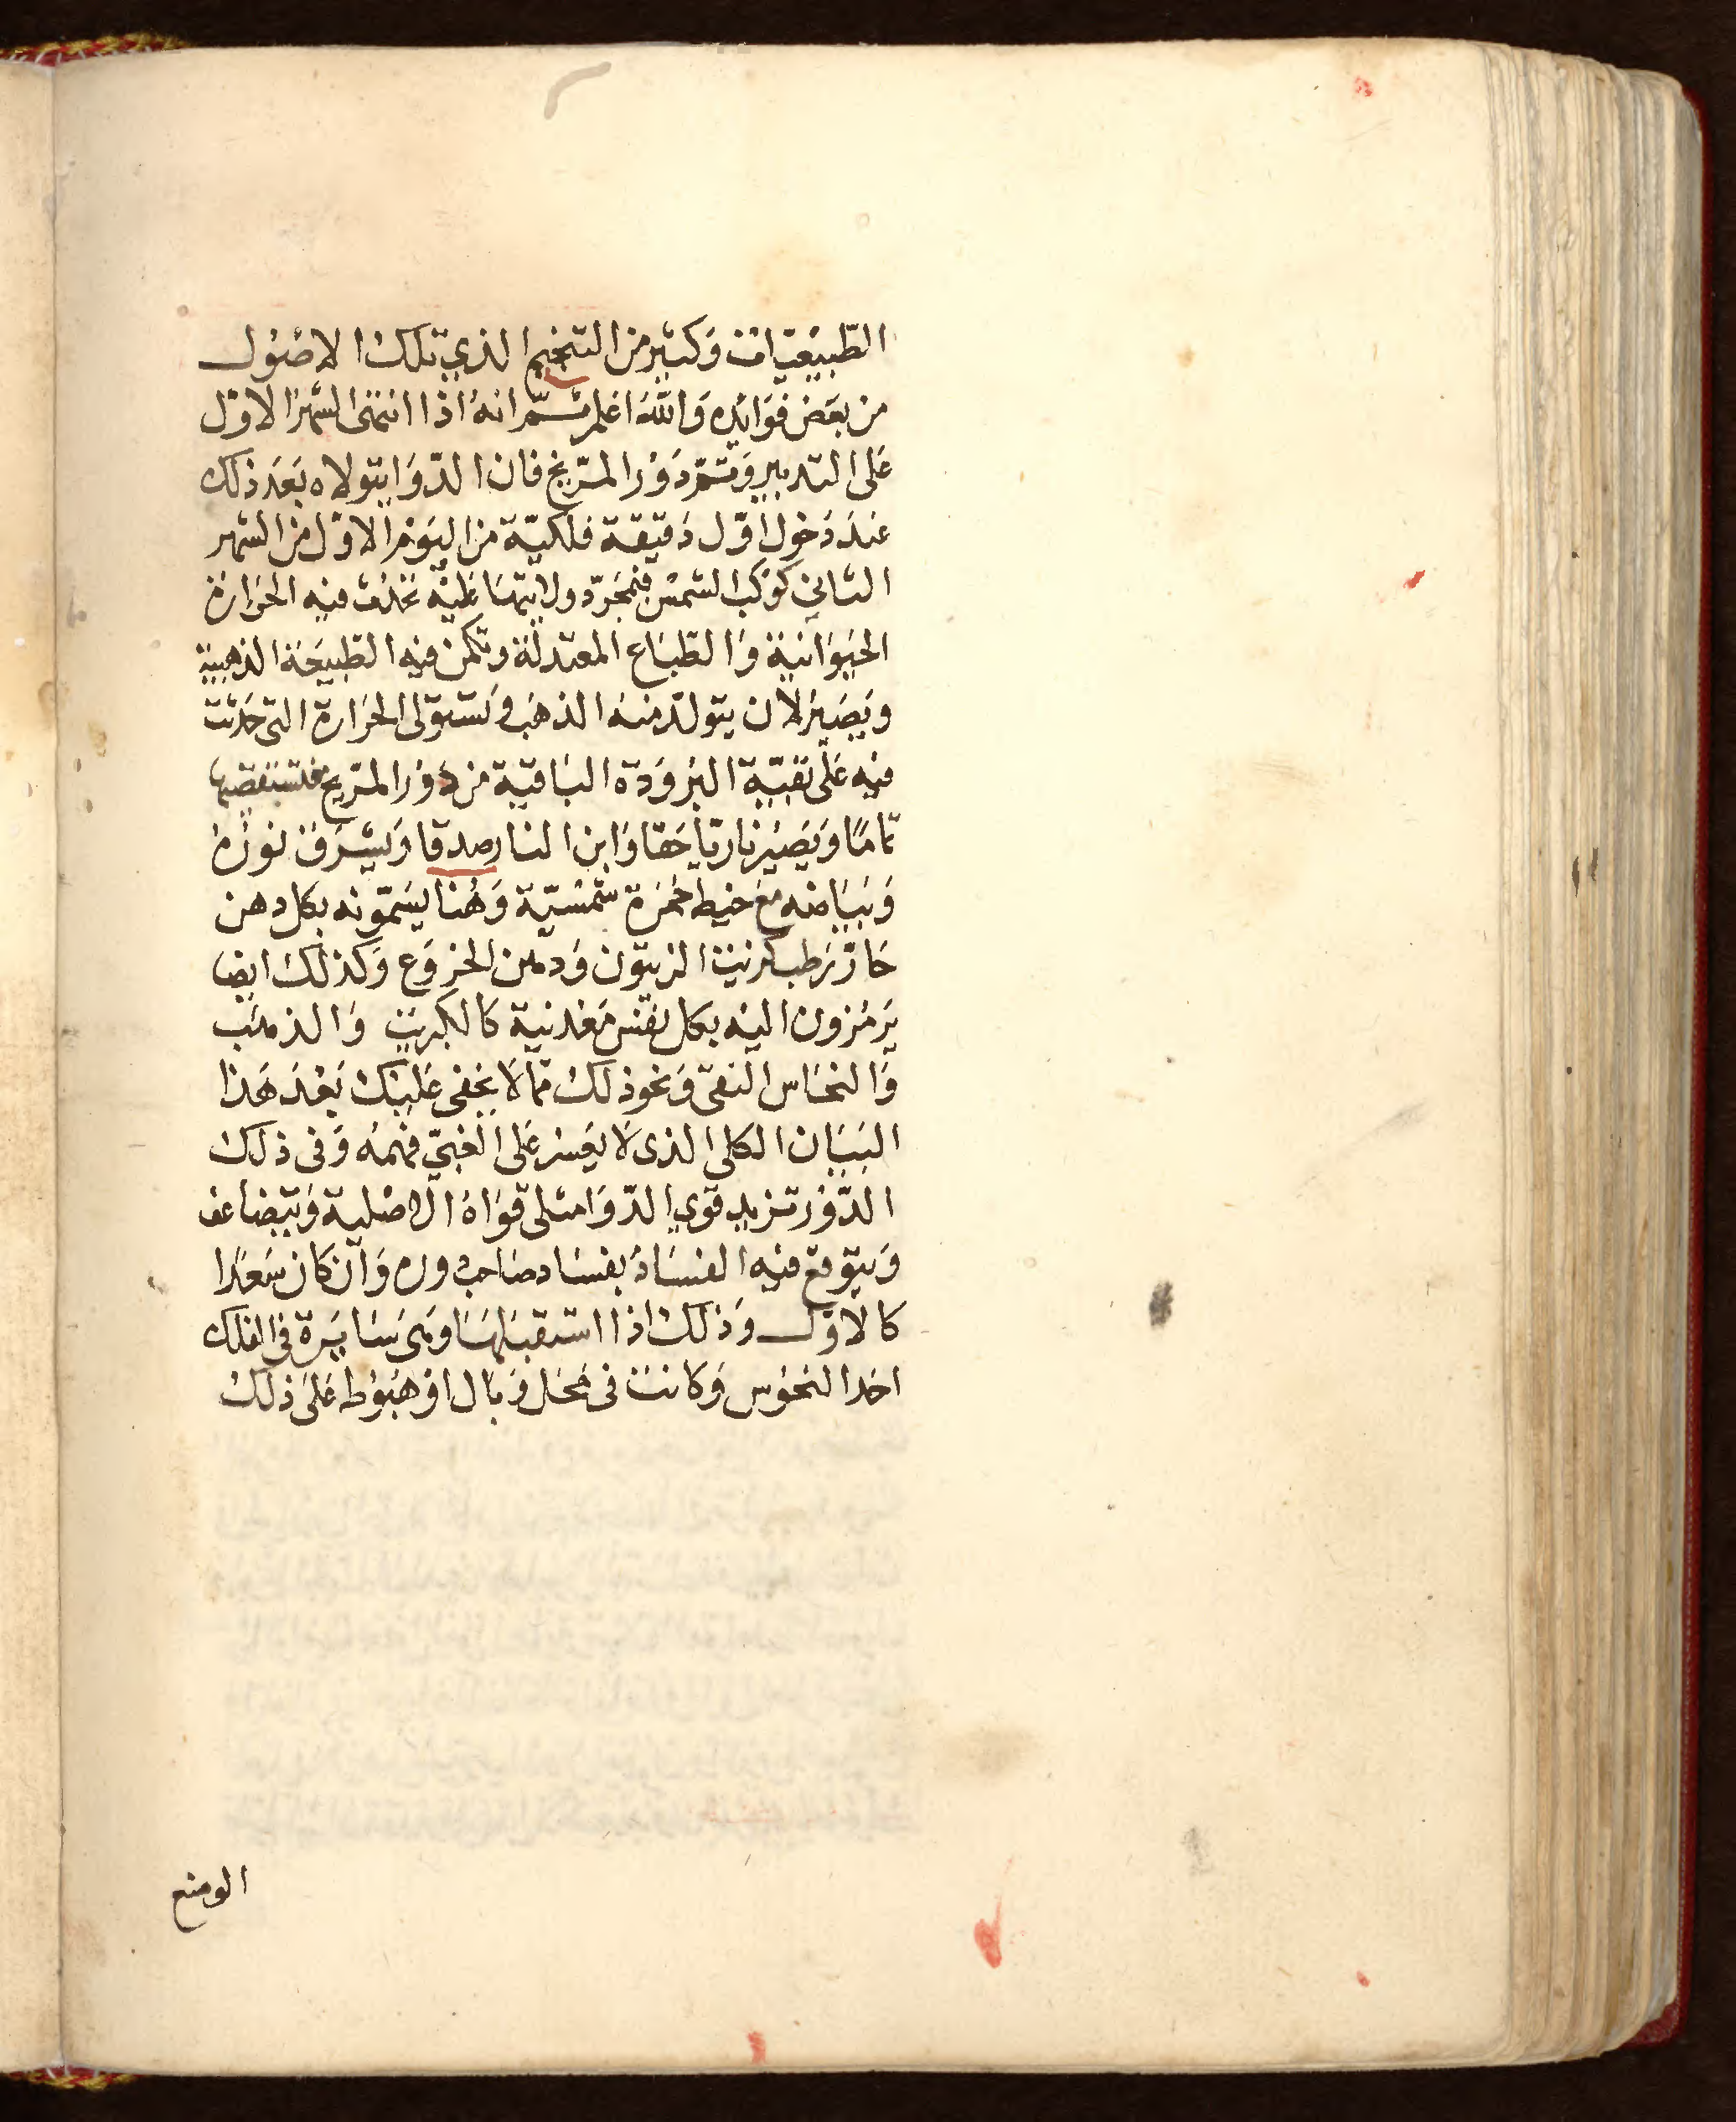 الطّبيعيات وَكثير من التنجيم الذي تلك الاصُول
من بعَض فوَائده وَاللّه اعلم ثمّ انهُ اذا انتهى الشهر الاوّل
عَلى التدبير وَتمّ دَوْر المرّيخ فان الدّوَا يتولاه بَعَد ذلك
عندَ دَخول اوّل دَقيقة فلكيّة من اليَوم الاوّل من الشهر
الثاني كوْكب الشمسْ فبمجَرّد ولايتهَا عَليْه تحدُث فيه الحَرارَة
الحيَوَانيَة وَالطّباع المعتدلة وتكمن فيه الطبيَعَة الذهبيَة
ويَصَير لان يتولدّ منهُ الذهَب وَتستوَلى الحَرَارة التي حَدثت
فيه عَلى بقيّة البرُوَدة البَاقيَة من دَوْر المرّيخ فلتستنقصهَا
تمامًا وَيَصَير نارياّ حَقا وَابن النار صدقا وَيشرَق نورُه
وَبيَاضه مَع خيط حمُرَة شمْسيّة وَهُنا يسَمّونه بكل دهن
حَارّ رَطب كزيت الزيتون وَدهن الخرَوَع وَكذلك ايضا
يَرمُزون اليْه بكل نفس مَعْدنية كالكبريت وَالذهَب
وَالنحَاس النقي وَنحو ذلك ممّا لاَ يخفى عَليْك بَعْدَ هَذا
البَيَان الكلي الذي لاَ يعَسر عَلى الغبيّ فهَمهُ وَفي ذلك
الدّوْر تزيد قوي الدّوَا مثلي قوَاهُ الاصْلية وَيتضاعف
وَيتوقع فيه الفسَادُ بفسَاد صَاحب دوره وَان كان سَعدًا
كالاوّل وَذلك اذا استقبَلهَا وَهي سَايرَة في الفلك
احَد النحوُس وَكانت في محَل وَبَال اوْ هبوُط عَلى ذلك
الوضع